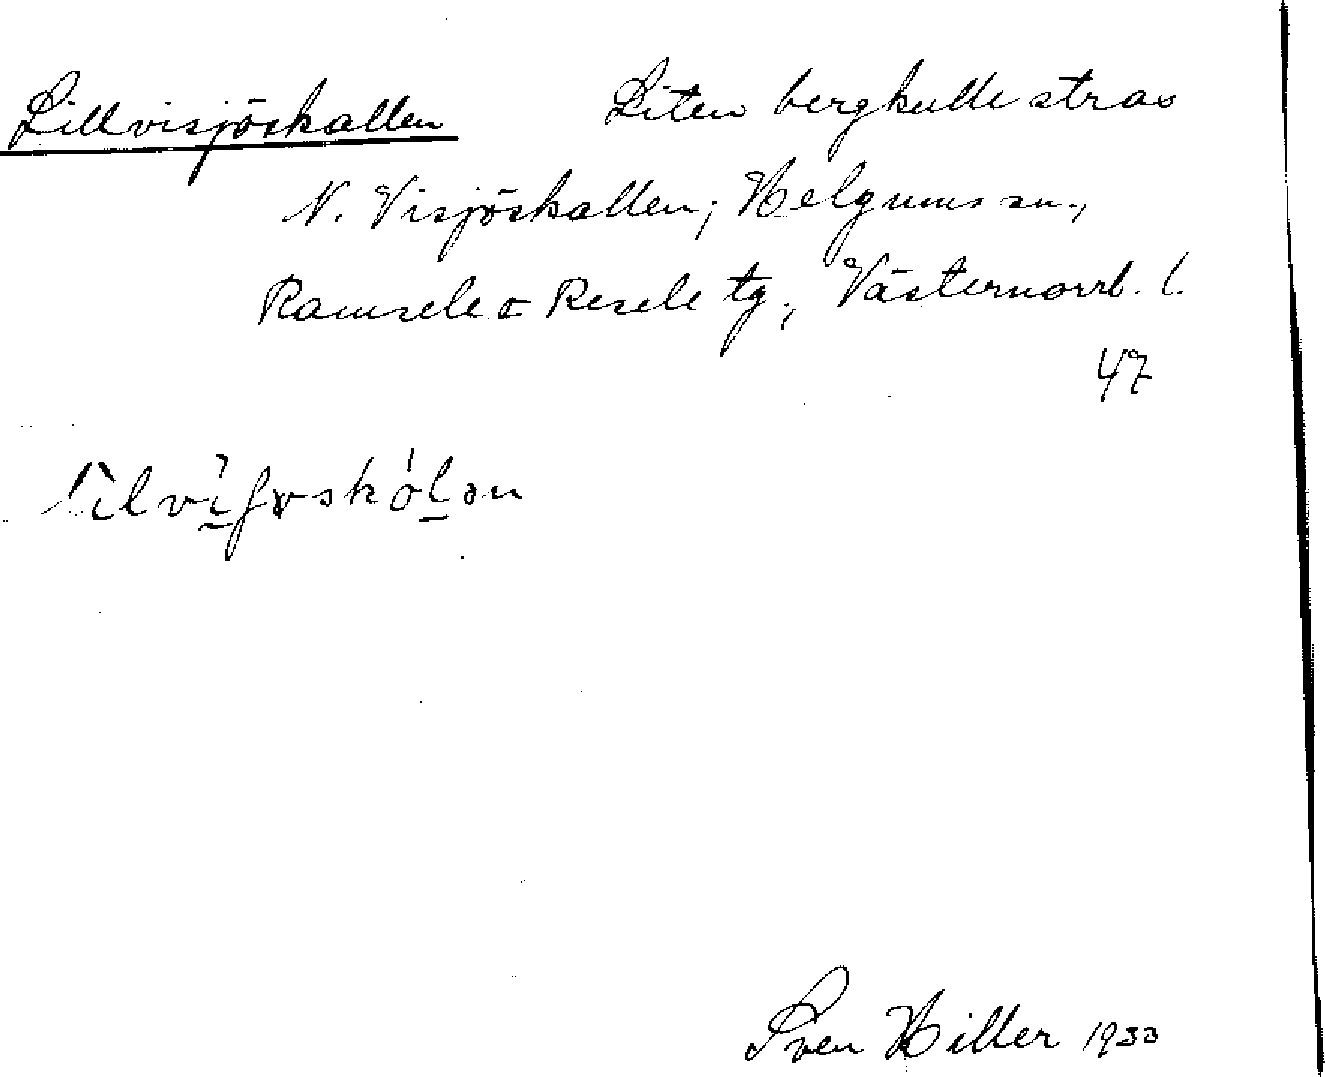 Lillvisjöskallen Liten bergkulle strax
N. Visjöskallen; Helgums sn.,
Ramsele o Resele tg., Västernorrl. l.
47
Sven Hiller 1933